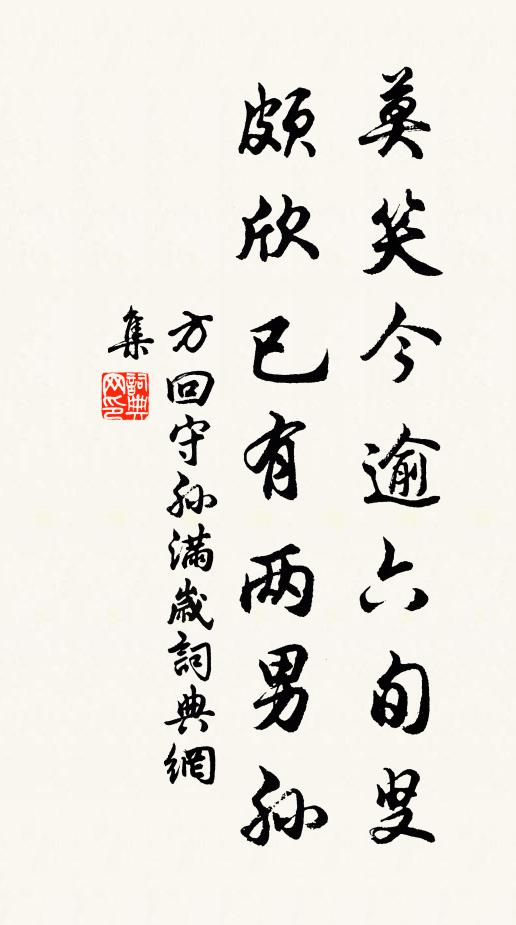 莫笑今逾六旬叟
頗欣已有两男孙
方回守孙滿歲詞典網
集
詞典
网印